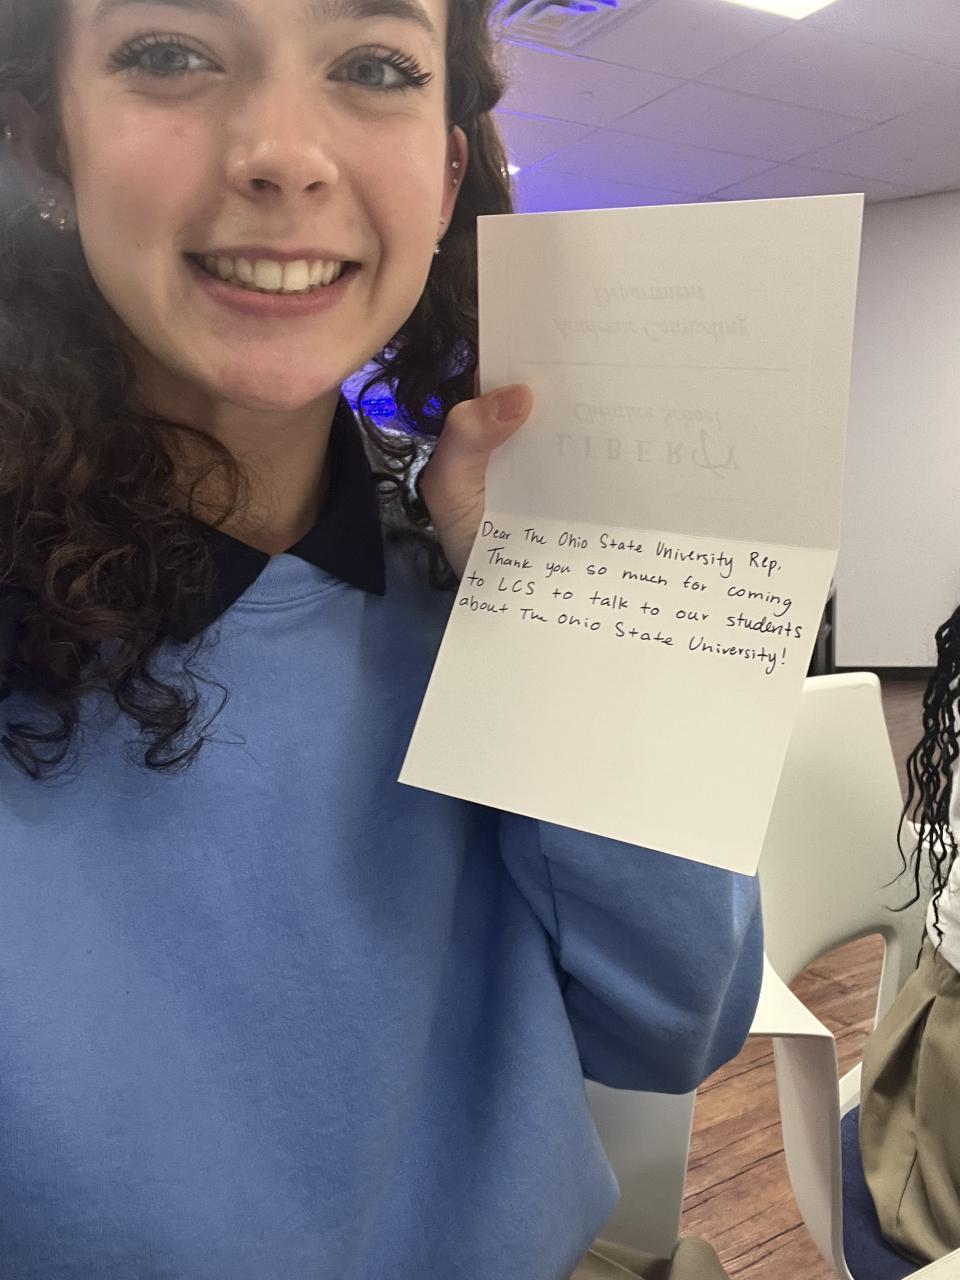 LIBERTY
Christian School
Academic Counseling
Department
Dear The Ohio State University Rep,
Thank you so much for coming
to LCS to talk to our students
about The Ohio State University!